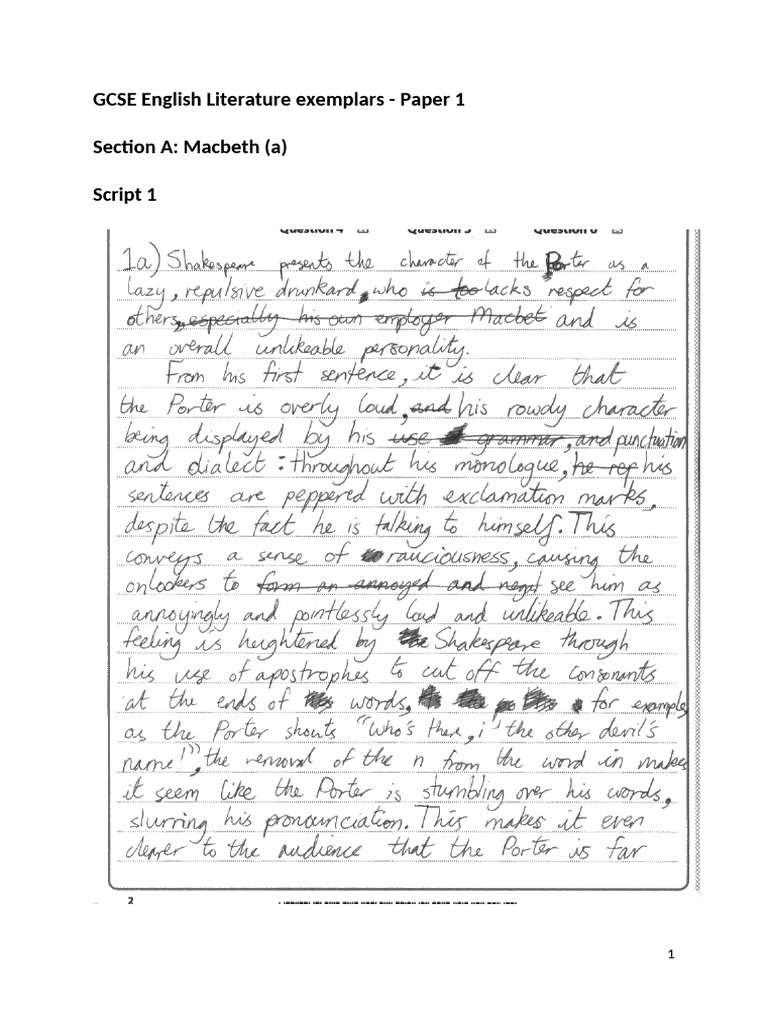 GCSE English Literature exemplars - Paper 1
Section A: Macbeth (a)
Script 1
Question 4 Question 5 Question 6
1a) Shakespeare presents the character of the Porter as a
lazy, repulsive drunkard, who is too lacks respect for
others, especially his own employer Macbet and is
an overall unlikeable personality.
From his first sentence, it is clear that
the Porter is overly loud, and his rowdy character
being displayed by his use grammar, and punctuation
and dialect : throughout his monologue, he ref his
sentences are peppered with exclamation marks,
despite the fact he is talking to himself. This
conveys a sense of rauciousness, causing the
onlookers to form an annoyed and negt see him as
annoyingly and pointlessly loud and unlikeable. This
feeling is heightened by the Shakespeare through
his use of apostrophes to cut off the consonants
at the ends of words, for example,
as the Porter shouts "Who's there, i' the other devil's
name!", the removal of the n from the word in makes
it seem like the Porter is stumbling over his words,
slurring his pronounciation. This makes it even
clearer to the audience that the Porter is far
2
1